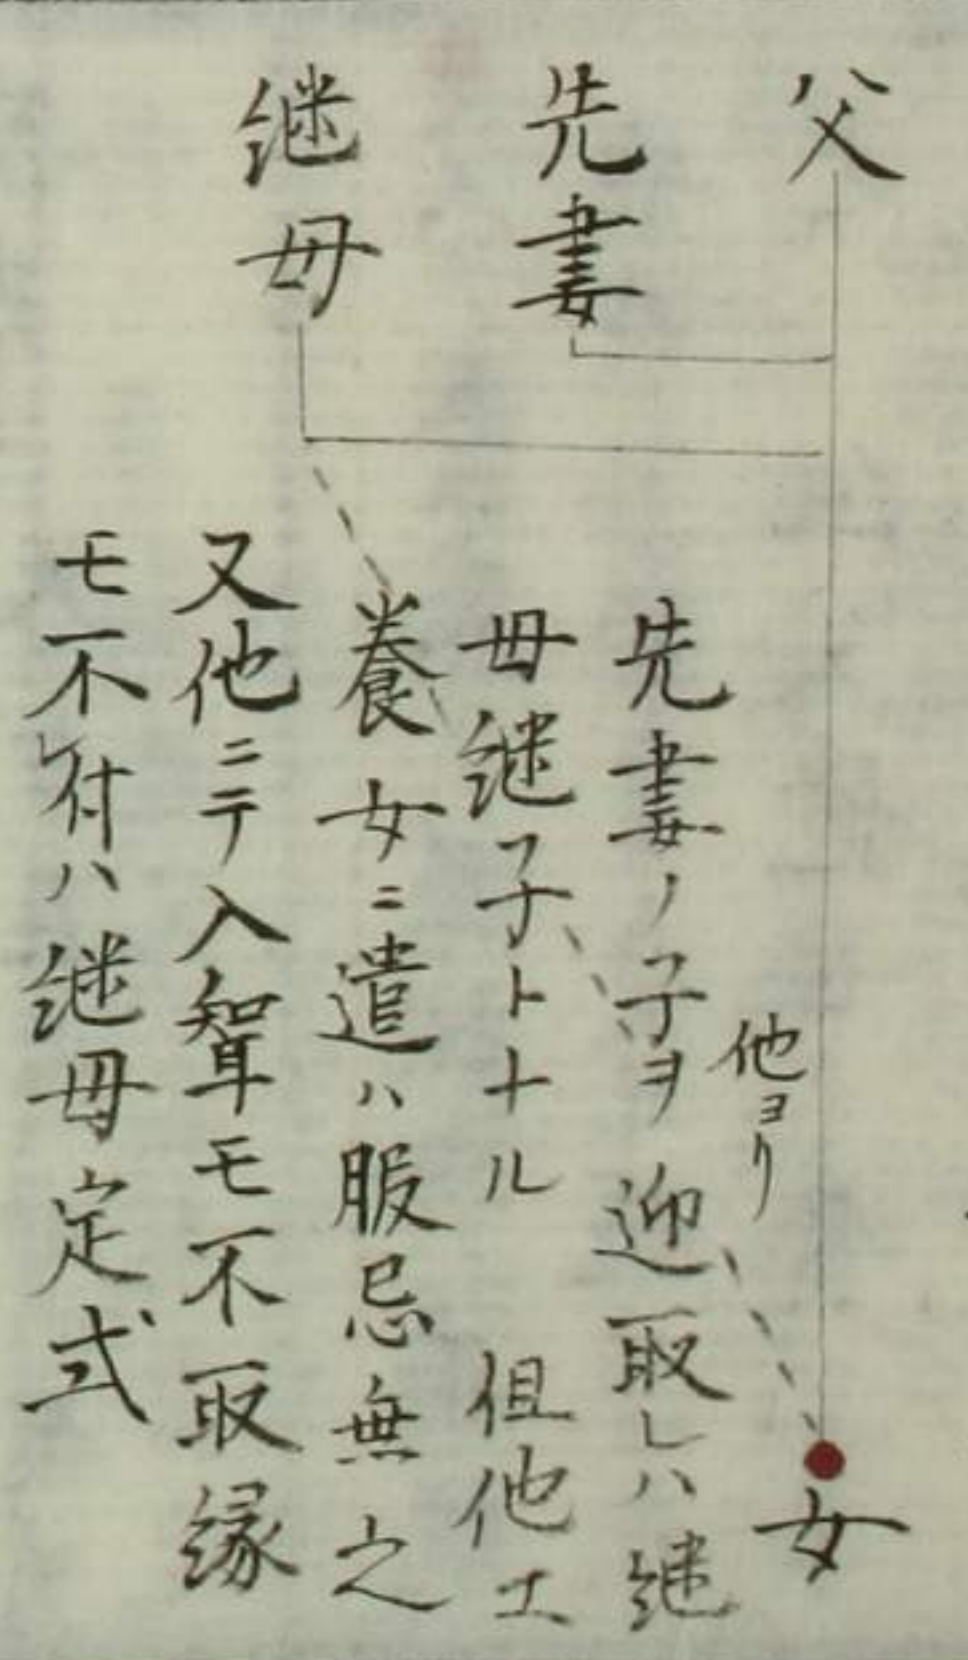 父
先妻
継母
他ヨリ
女
先妻ノ子ヲ迎取レハ継
母継子トナル 但他エ
養女ニ遣ハ服忌無之
又他ニテ入聟モ不取縁
モ不付ハ継母定式